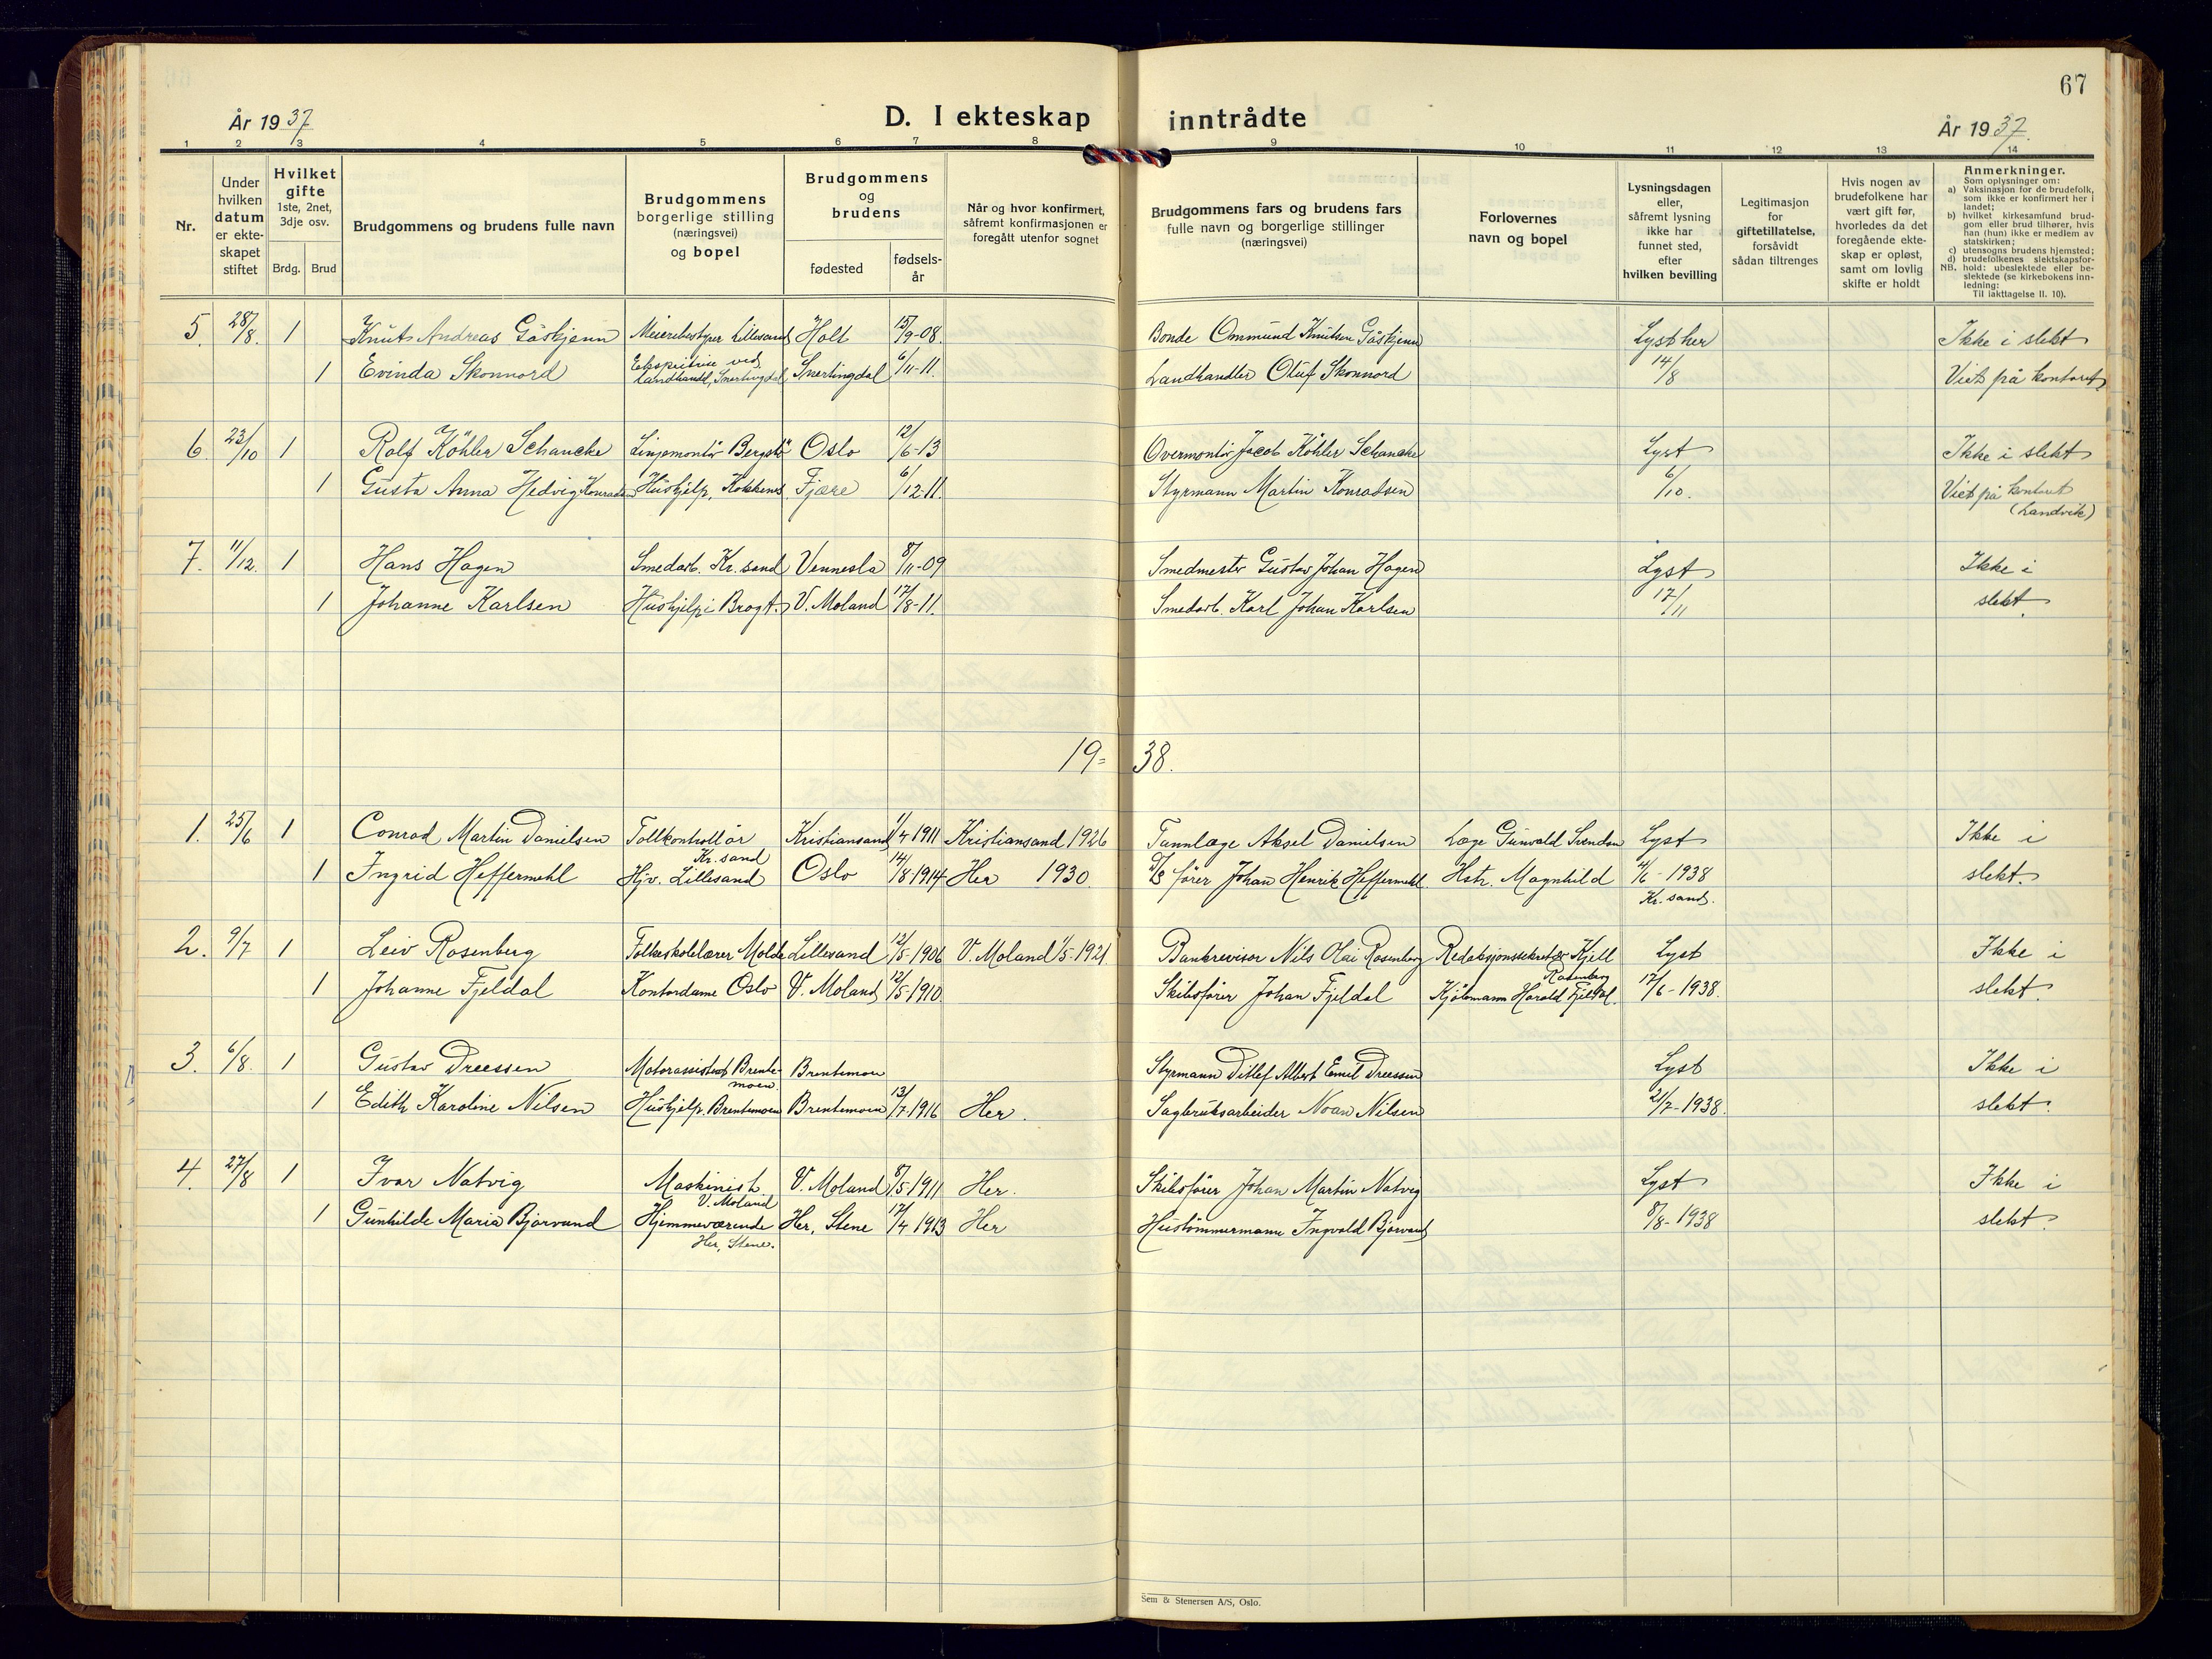 67
År 1937
D. I ekteskap inntrådte
År 1937.
1 2 3 4 5 6 7 8 9 10 11 12 13 14
Nr.
Under
hvilken
datum
er ekte-
skapet
stiftet
Hvilket
gifte
1ste, 2net,
3dje osv.
Brdg. Brud
Brudgommens og brudens fulle navn
Brudgommens
borgerlige stilling
(næringsvei)
og bopel
Brudgommens
og
brudens
fødested
fødsels-
år
Når og hvor konfirmert,
såfremt konfirmasjonen er
foregått utenfor sognet
Brudgommens fars og brudens fars
fulle navn og borgerlige stillinger
(næringsvei)
Forlovernes
navn og bopel
Lysningsdagen
eller,
såfremt lysning
ikke har
funnet sted,
efter
hvilken bevilling
Legitimasjon
for
giftetillatelse,
forsåvidt
sådan tiltrenges
Hvis nogen av
brudefolkene har
vært gift før,
hvorledes da det
foregående ekte-
skap er opløst,
samt om lovlig
skifte er holdt
Anmerkninger.
Som oplysninger om:
a) Vaksinasjon for de brudefolk,
som ikke er konfirmert her i
landet;
b) hvilket kirkesamfund brud-
gom eller brud tilhører, hvis
han (hun) ikke er medlem av
statskirken;
c) utensogns brudens hjemsted;
d) brudefolkenes slektskapsfor-
NB. hold: ubeslektede eller be-
slektede (se kirkebokens inn-
ledning:
Til iakttagelse II. 10).
5. 28/8. 1 Knut Andreas Gåskjenn Meieribestyrer Lillesand Holt 15/9-08. Bonde Ommund Knutsen Gåskjenn Lyst her Ikke i slekt
1 Evinda Skonnord Ekspeditrise ved landhandel, Snertingdal Snertingdal 6/11-11. Landhandler Oluf Skonnord 14/8 Viet på kontoret
6. 23/10 1 Rolf Köhler Schancke Linjemontør Oslo 12/6-13 Overmontør Jacob Köhler Schancke Lyst Ikke i slekt
1 Gusta Anna Hedvig Konradsen Hushjelp, Fjære 6/12-11. Styrmann Martin Konradsen 6/10. Viet på kontoret
(Landvik)
7. 11/12. 1 Hans Hagen Smedarb. Kr.sand Vennesla 8/11-09 Smedmester Gustav Johan Hagen Lyst Ikke i
1 Johanne Karlsen Hushjelp i V. Moland 17/8-11. Smedarb. Karl Johan Karlsen 17/11 slekt.
19-38.
1. 25/6 1 Conrad Martin Danielsen Tollkontrollør Kr.sand Kristiansand 1/4 1911 Kristiansand 1926 Tannlæge Aksel Danielsen Læge Gunvald Svendsen Lyst Ikke i
1 Ingrid Heffermehl Hjv. Lillesand Oslo 14/8 1914 Her 1930. D/S fører Johan Henrik Heffermehl. Hstr. Magnhild 4/6-1938 slekt.
Kr.sand.
2. 9/7 1 Leiv Rosenberg Folkeskolelærer Molde Lillesand 12/5-1906 V. Moland 1/5-1921. Bankrevisor Nils Olai Rosenberg Redaksjonssekretær Kjell Rosenberg Lyst Ikke i
1 Johanne Fjeldal Kontordame Oslo V. Moland 12/5-1910. Skibsfører Johan Fjeldal Kjøbmann Harald Fjeldal. 17/6-1938. slekt.
3. 6/8. 1 Gustav Dreessen Motorassistent Brente-
moen Brentemoen Styrmann Ditlef Albert Emil Dreessen Lyst Ikke i
1 Edith Karoline Nilsen Hushjelp, Brentemoen Brentemoen 13/7-1916 Her. Sagbruksarbeider Noan Nilsen 21/7-1938. slekt.
4. 27/8 1 Ivar Natvig Maskinist V. Moland V. Moland 8/5-1911 Her. Skibsfører Johan Martin Natvig Lyst Ikke i
1 Gunhilde Maria Bjorvand Hjemmeværende Her, Stene. Her, Stene 17/4 1913 Her Hustømmermann Ingvald Bjorvand 8/8-1938 slekt.
Sem & Stenersen A/S, Oslo.